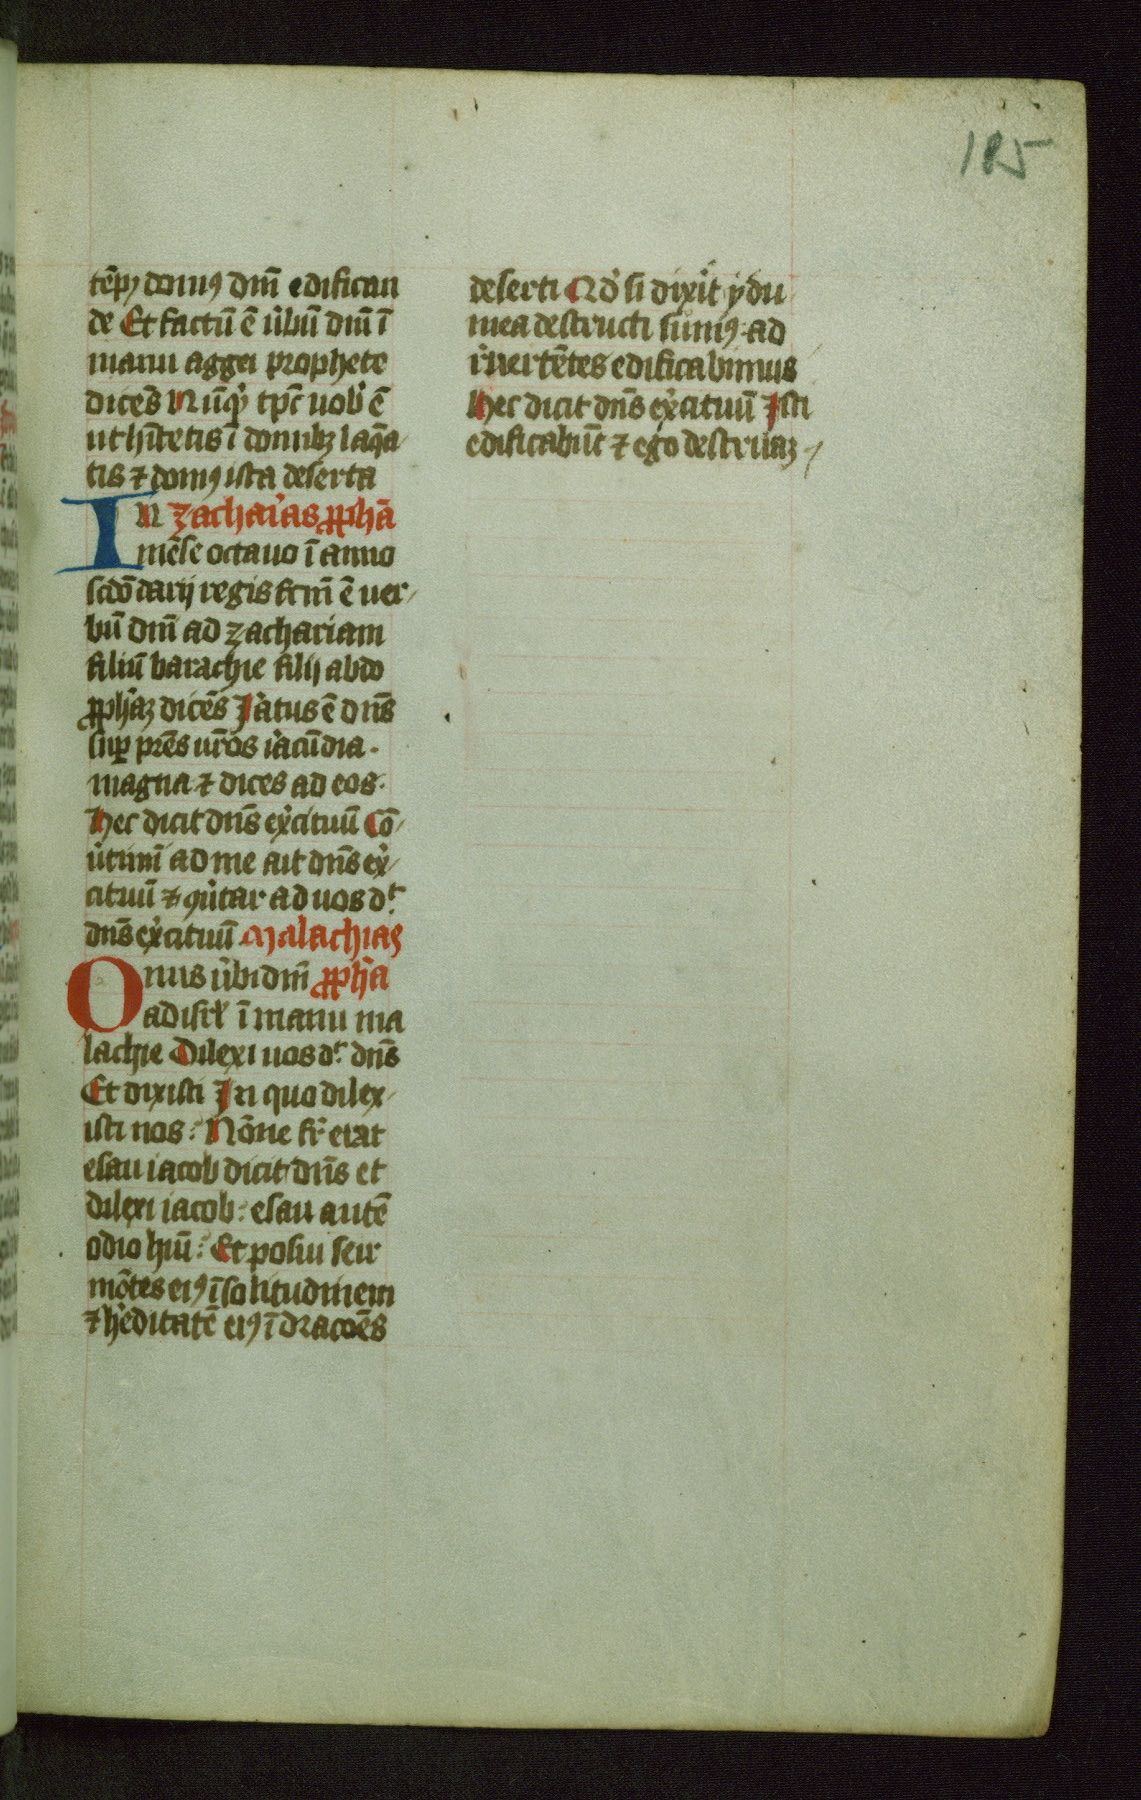 185
tēpꝰ domꝰ dnī edifican
de Et factū ē ủbū dnī ī
manu aggei prophete
dicēs Nūqͥ tp̄c uobͥ ē
ut hītetis ī domibꝫ laq̄a
tis ⁊ domꝰ ista deserta
In zachaͥias ꝓphā
mēse octauo ī anno
scdō darij regis fcm̄ ē uer
bū dnī ad zachariam
filiū barachie filij abdo
ꝓphāꝫ dicēs Iͣatus ē dn̄s
suꝑ pr̄es ur̄os iͣacūdia .
magna ⁊ dices ad eos .
hec dicit dn̄s ex̓cituū Cō
u̓timī ad me ait dn̄s ex̓
cituū ⁊ ꝯu̓tar ad uos dt
dn̄s ex̓cituū Malachias
Onus u̓bi dnī ꝓph̓a
ad isrl̓ ī manu ma
lachie Dilexi uos dt dn̄s
Et dixisti In quo dilex
isti nos : Nōne fr̄ erat
esau iacob dicit dn̄s et
dilexi iacob : esau autē
odio hiū : Et posui seir
mōtes eiꝰ ī solitudinem
⁊ h̓editatē eiꝰ ī dracōes
deserti Qd̓ si dixit̓ ydu
mea destructi sumꝰ : ad
r̓uertētes edificabimus
hec dicit dn̄s ex̓cituū Isti
edificabūt ⁊ ego destruaꝫ